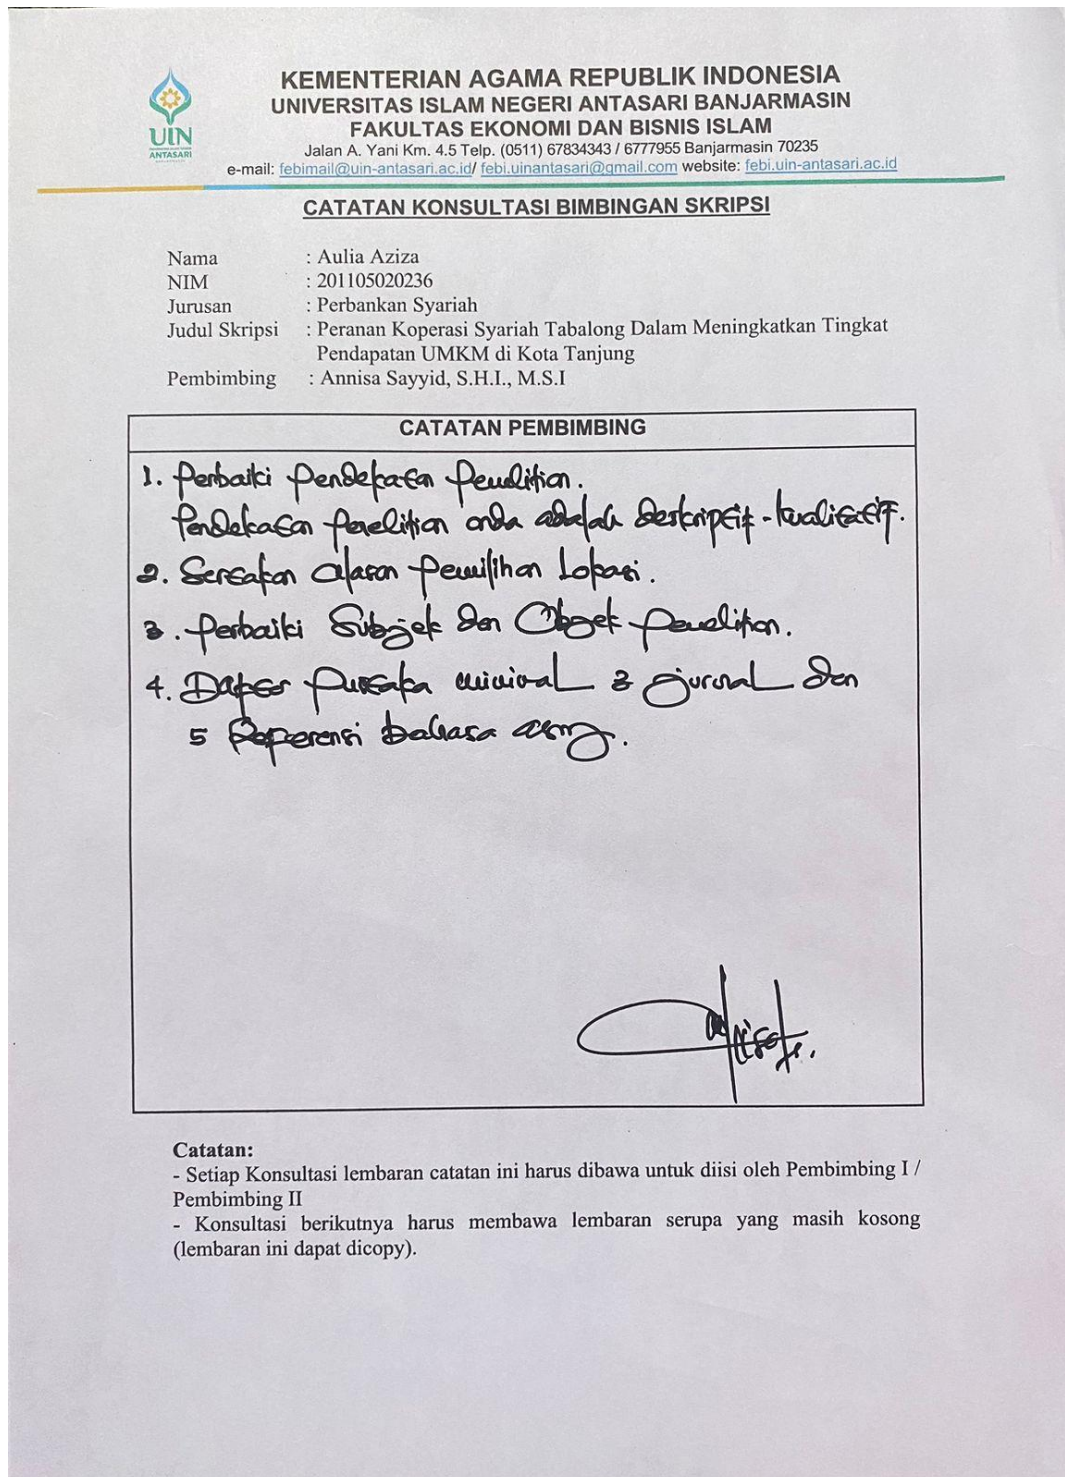 KEMENTERIAN AGAMA REPUBLIK INDONESIA
UNIVERSITAS ISLAM NEGERI ANTASARI BANJARMASIN
FAKULTAS EKONOMI DAN BISNIS ISLAM
Jalan A. Yani Km. 4.5 Telp. (0511) 67834343 / 6777955 Banjarmasin 70235
e-mail: febimail@uin-antasari.ac.id/ febi.uinantasari@gmail.com website: febi.uin-antasari.ac.id
UIN
ANTASARI
CATATAN KONSULTASI BIMBINGAN SKRIPSI
Nama : Aulia Aziza
NIM : 201105020236
Jurusan : Perbankan Syariah
Judul Skripsi : Peranan Koperasi Syariah Tabalong Dalam Meningkatkan Tingkat
Pendapatan UMKM di Kota Tanjung
Pembimbing : Annisa Sayyid, S.H.I., M.S.I
CATATAN PEMBIMBING
1. Perbaiki Pendekatan Penelitian.
Pendekatan Penelitian anda adalah deskriptif-kualitatif.
2. Sertakan alasan Pemilihan Lokasi.
3. Perbaiki Subjek dan Objek Penelitian.
4. Daftar Pustaka minimal 3 jurnal dan
5 Referensi bahasa asing.
Catatan:
- Setiap Konsultasi lembaran catatan ini harus dibawa untuk diisi oleh Pembimbing I /
Pembimbing II
- Konsultasi berikutnya harus membawa lembaran serupa yang masih kosong
(lembaran ini dapat dicopy).